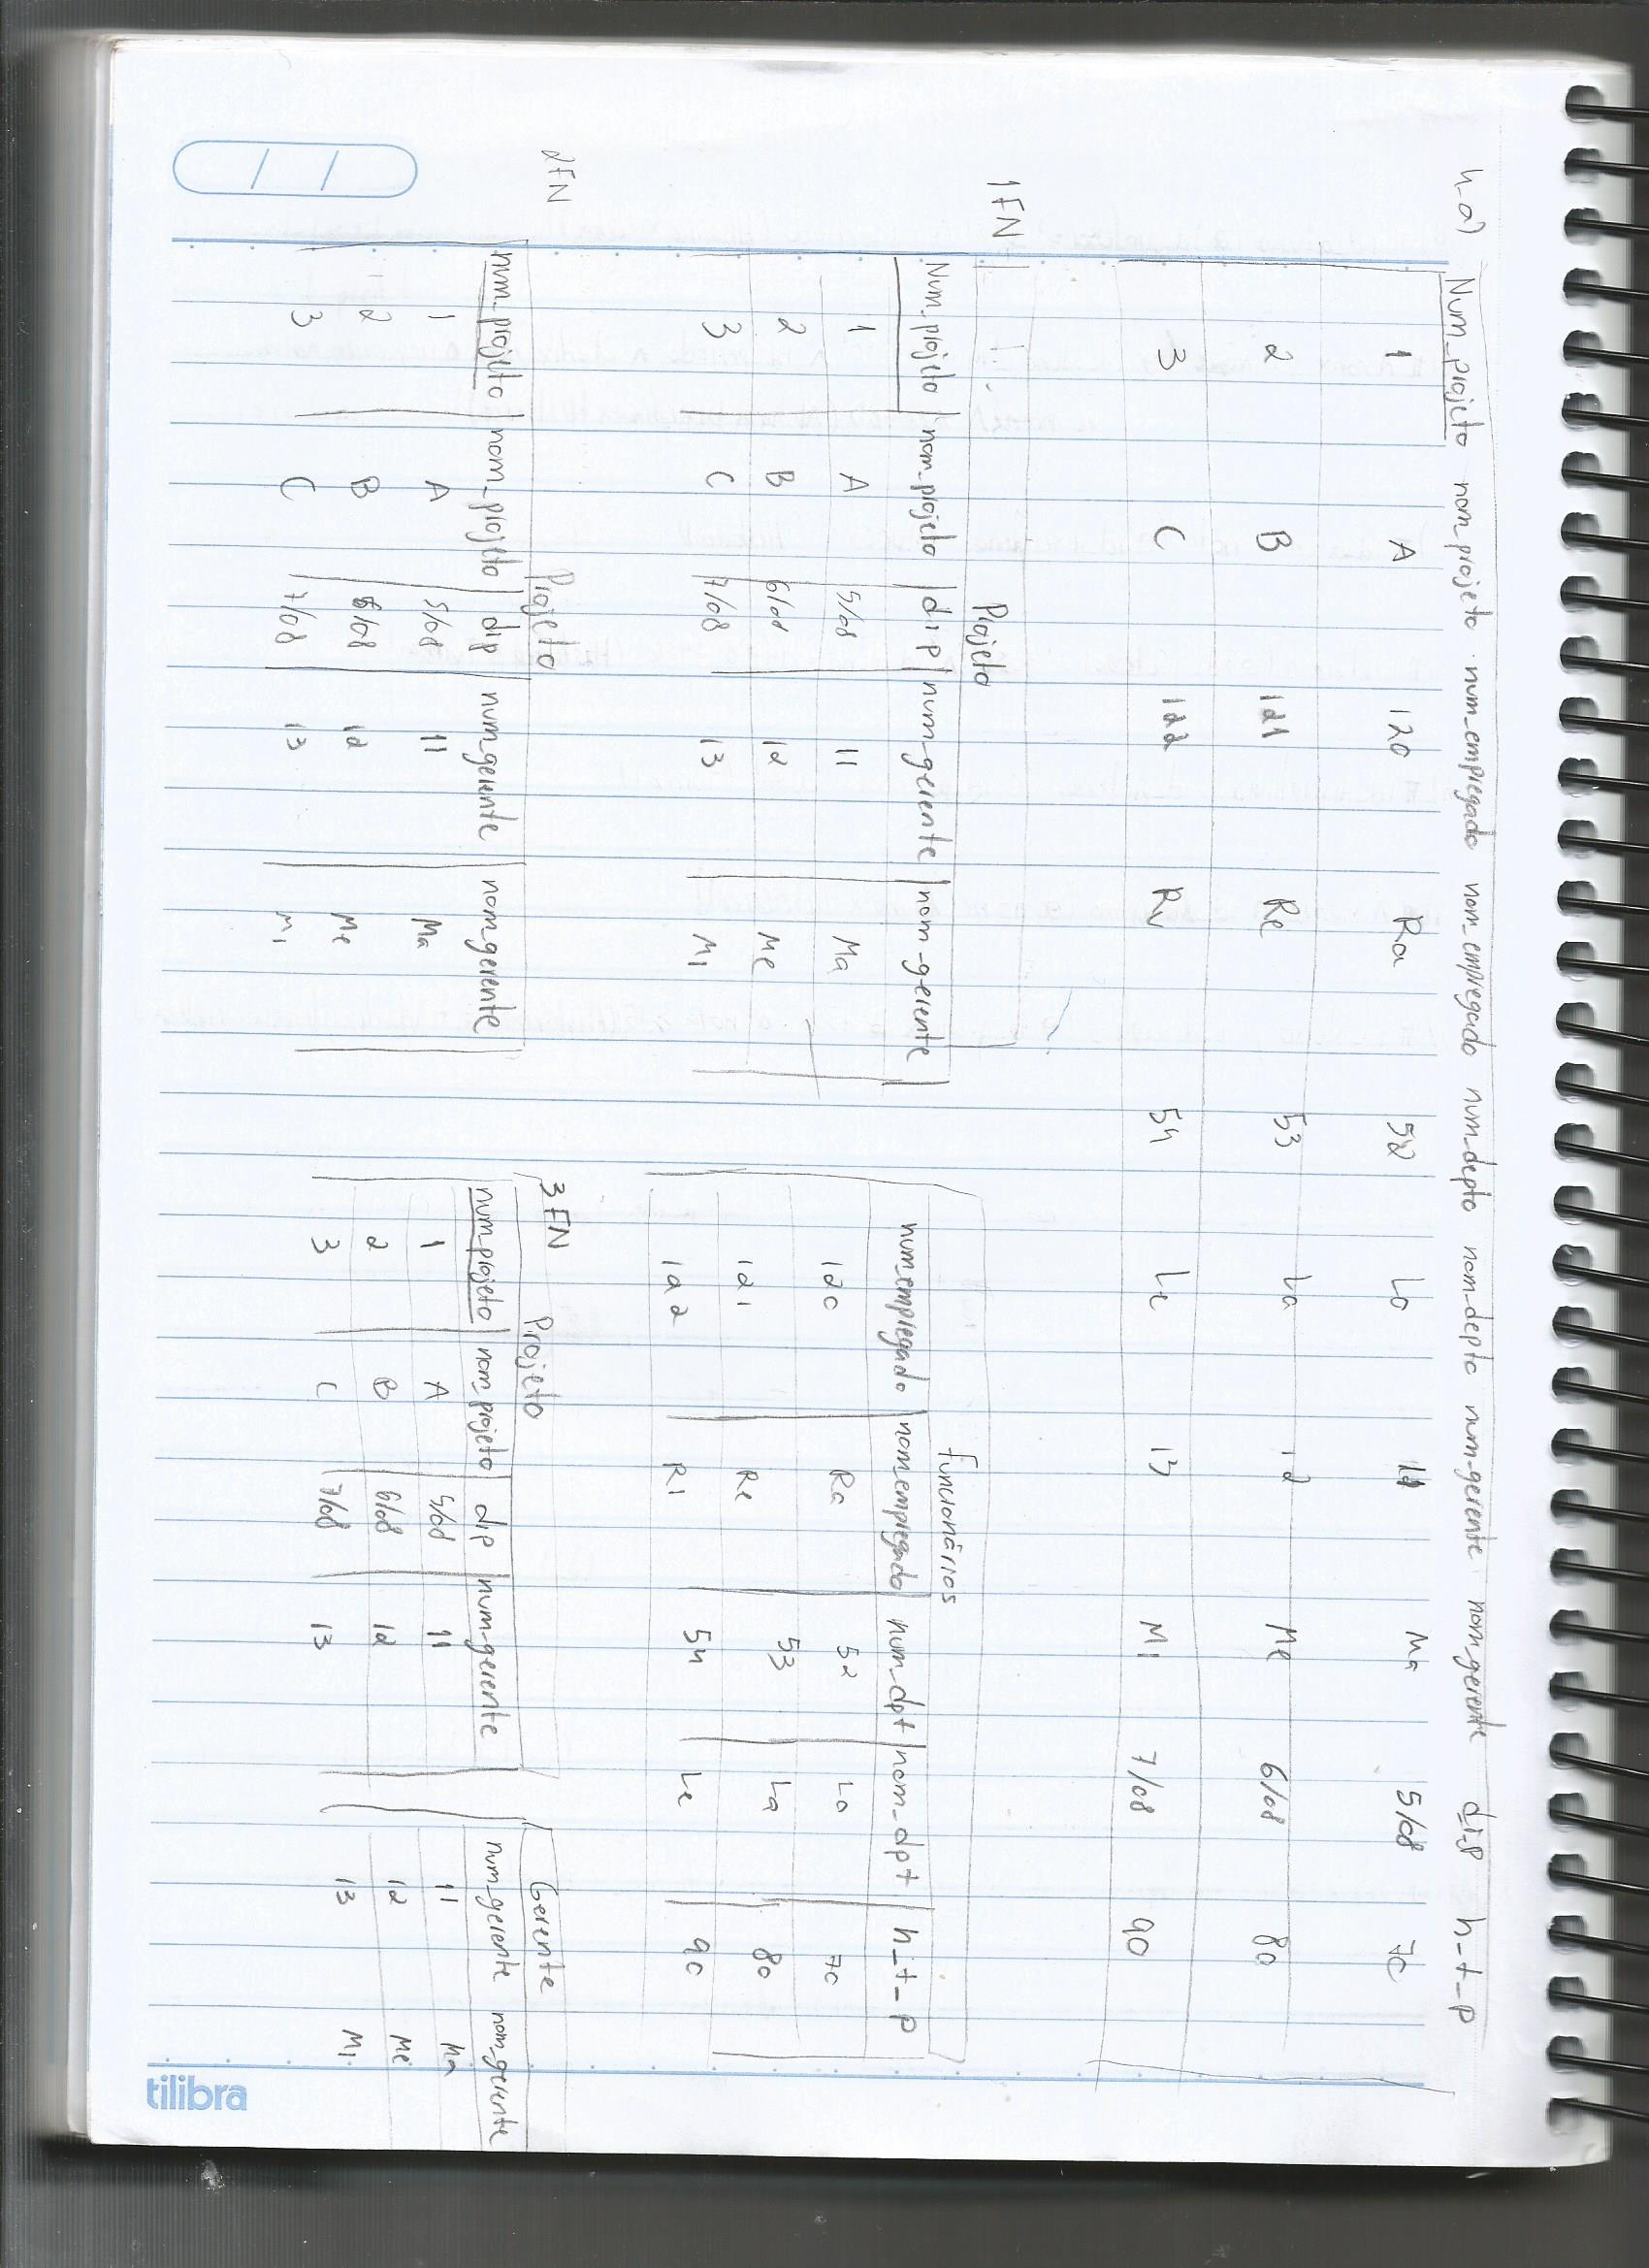 4-a) Num_projeto nom_projeto num_empregado nom_empregado num_depto nom-depto num-gerente nom-gerente d_i_p h_t_p
1 A 120 Ra 52 Lo 11 Ma 5/08 70
2 B 121 Re 53 La 12 Me 6/08 80
3 C 122 54 Le 13 Mi 7/08 90
1FN
Projeto
Num_projeto nom_projeto dip num-gerente nom-gerente
1 A 5/08 11 Ma
2 B 6/08 12 Me
3 C 7/08 13 Mi
funcionários
num_empregado nom_empregado num_dpt nom_dpt h_t_p
120 Ra 52 Lo 70
121 Re 53 La 80
122 Ri 54 Le 90
2FN
Projeto
num_projeto nom_projeto dip num_gerente nom_gerente
1 A 5/08 11 Ma
2 B 6/08 12 Me
3 C 7/08 13 Mi
3FN
Projeto
num_projeto nom_projeto dip num-gerente
1 A 5/08 11
2 B 6/08 12
3 C 7/08 13
Gerente
num_gerente nom_gerente
11 Ma
12 Me
13 Mi
tilibra